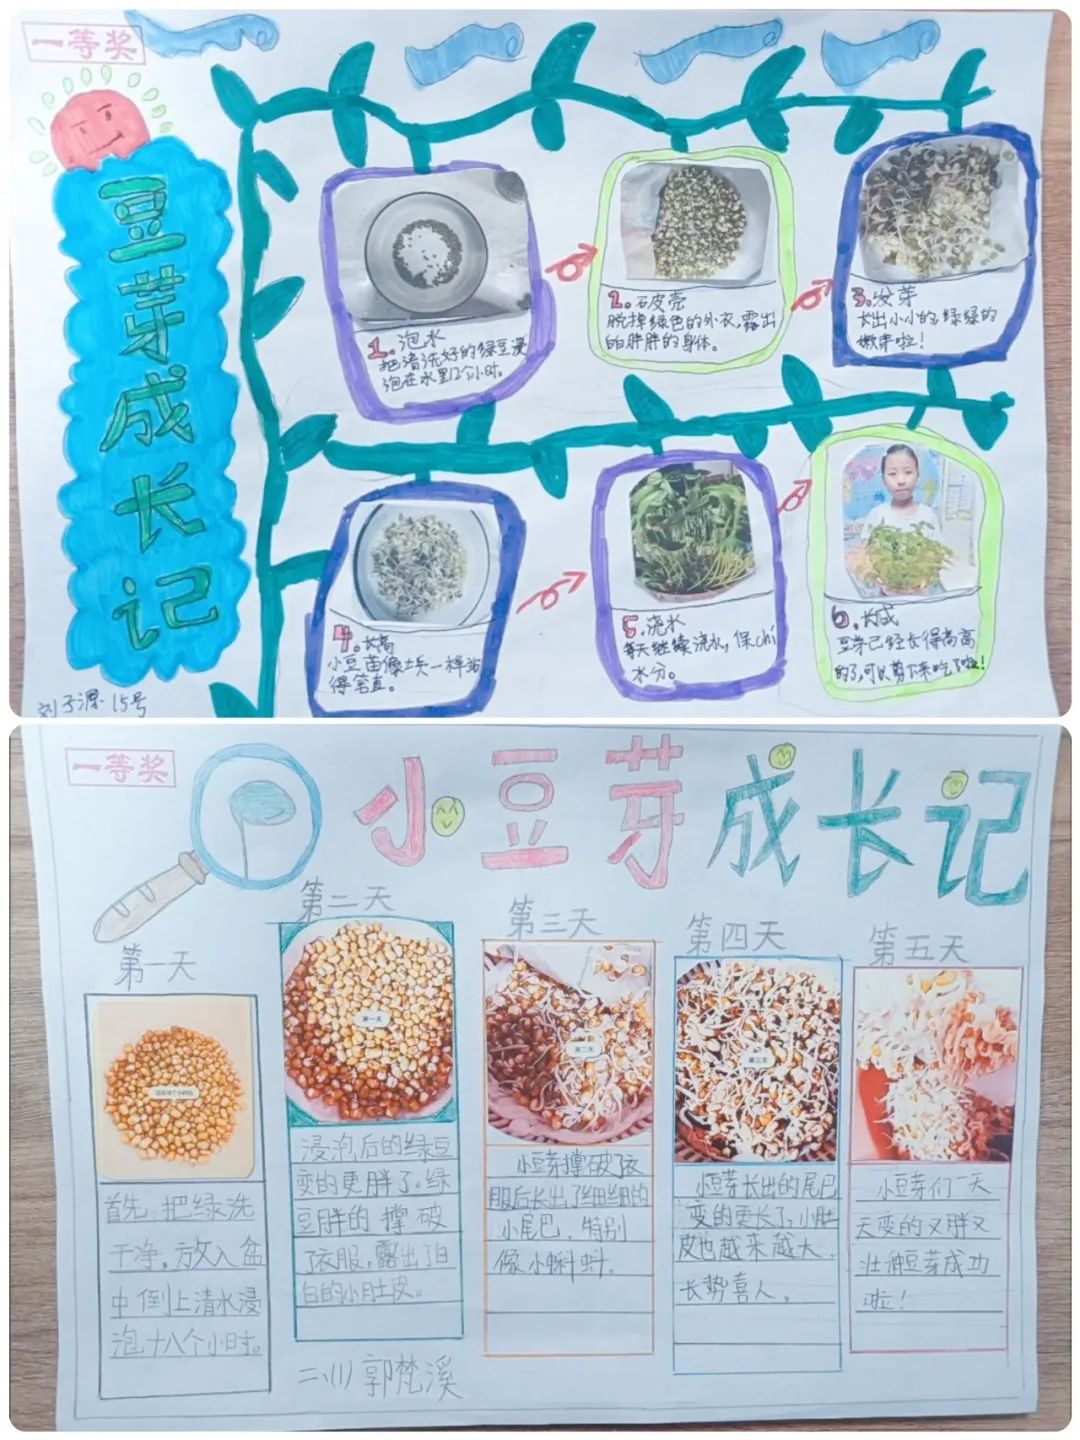 一等奖
豆芽成长记
1. 泡水
把清洗好的绿豆浸
泡在水里12个小时。
2. 破壳
脱掉绿色的外衣,露出
白胖胖的身体。
3. 发芽
长出小小的,绿绿的
嫩芽啦!
4. 长高
小豆苗像士兵一样站
得笔直。
5. 浇水
每天继续浇水,保chí
水分。
6. 长成
豆芽已经长得高高
的了,可以剪下来吃了啦!
15号
一等奖
小豆芽成长记
第一天
首先,把绿洗
干净,放入盆
中倒上清水浸
泡十八个小时。
第二天
第一天
浸泡后的绿豆
变的更胖了。绿
豆胖的撑破
了衣服,露出了白
白的小肚皮。
第三天
第二天
小豆芽撑破了衣
服后长出了细细的
小尾巴,特别
像小蝌蚪。
第四天
第三天
小豆芽长出的尾巴
变的更长了,小肚
皮也越来越大,
长势喜人。
第五天
小豆芽们一天
天变的又胖又
壮种豆芽成功
啦!
二、(1) 郭梵溪